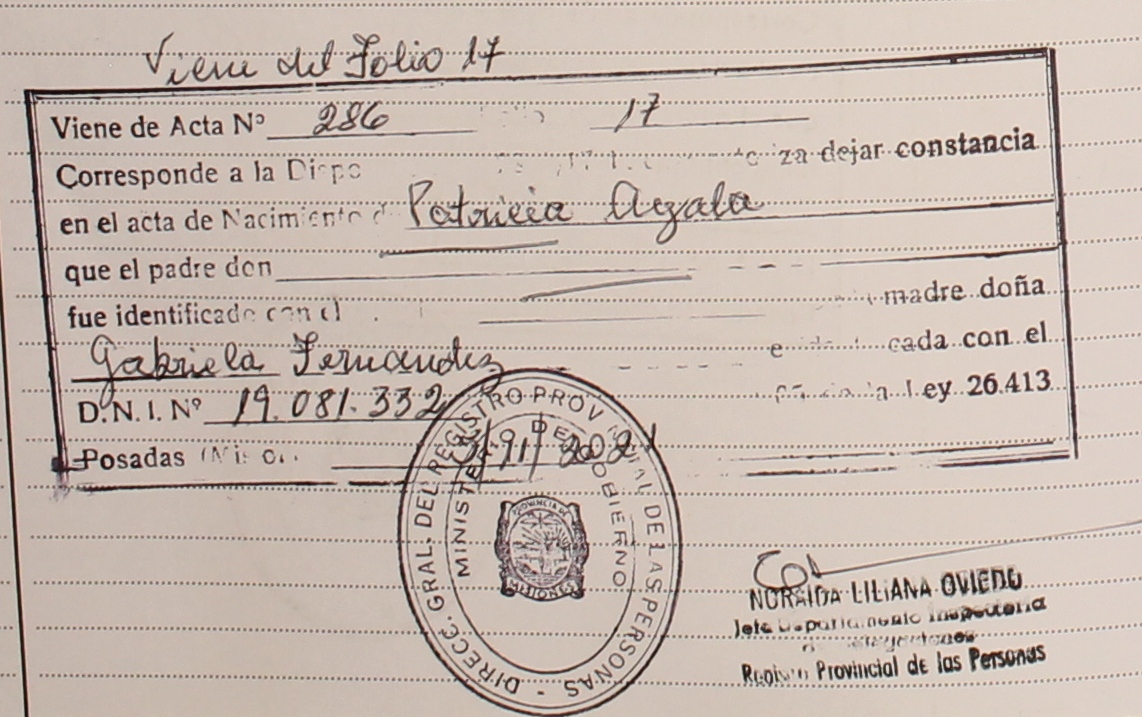 Viene del Folio 17
Viene de Acta Nº 286 17
Corresponde a la Dispo za dejar constancia
en el acta de Nacimiento d Patricia Ayala
que el padre don
fue identificado con el madre doña
Gabriela Fernandez cada con el
D.N.I. Nº 19.081.332 la Ley 26.413
Posadas (Mis 2021
DIRECC. GRAL. DEL REGISTRO PROVINCIAL DE LAS PERSONAS -
MINISTERIO DE GOBIERNO
PROVINCIA DE
MISIONES
NORAIDA LILIANA OVIEDO
Jefe Departamento Inspectoria
Registro Provincial de las Personas